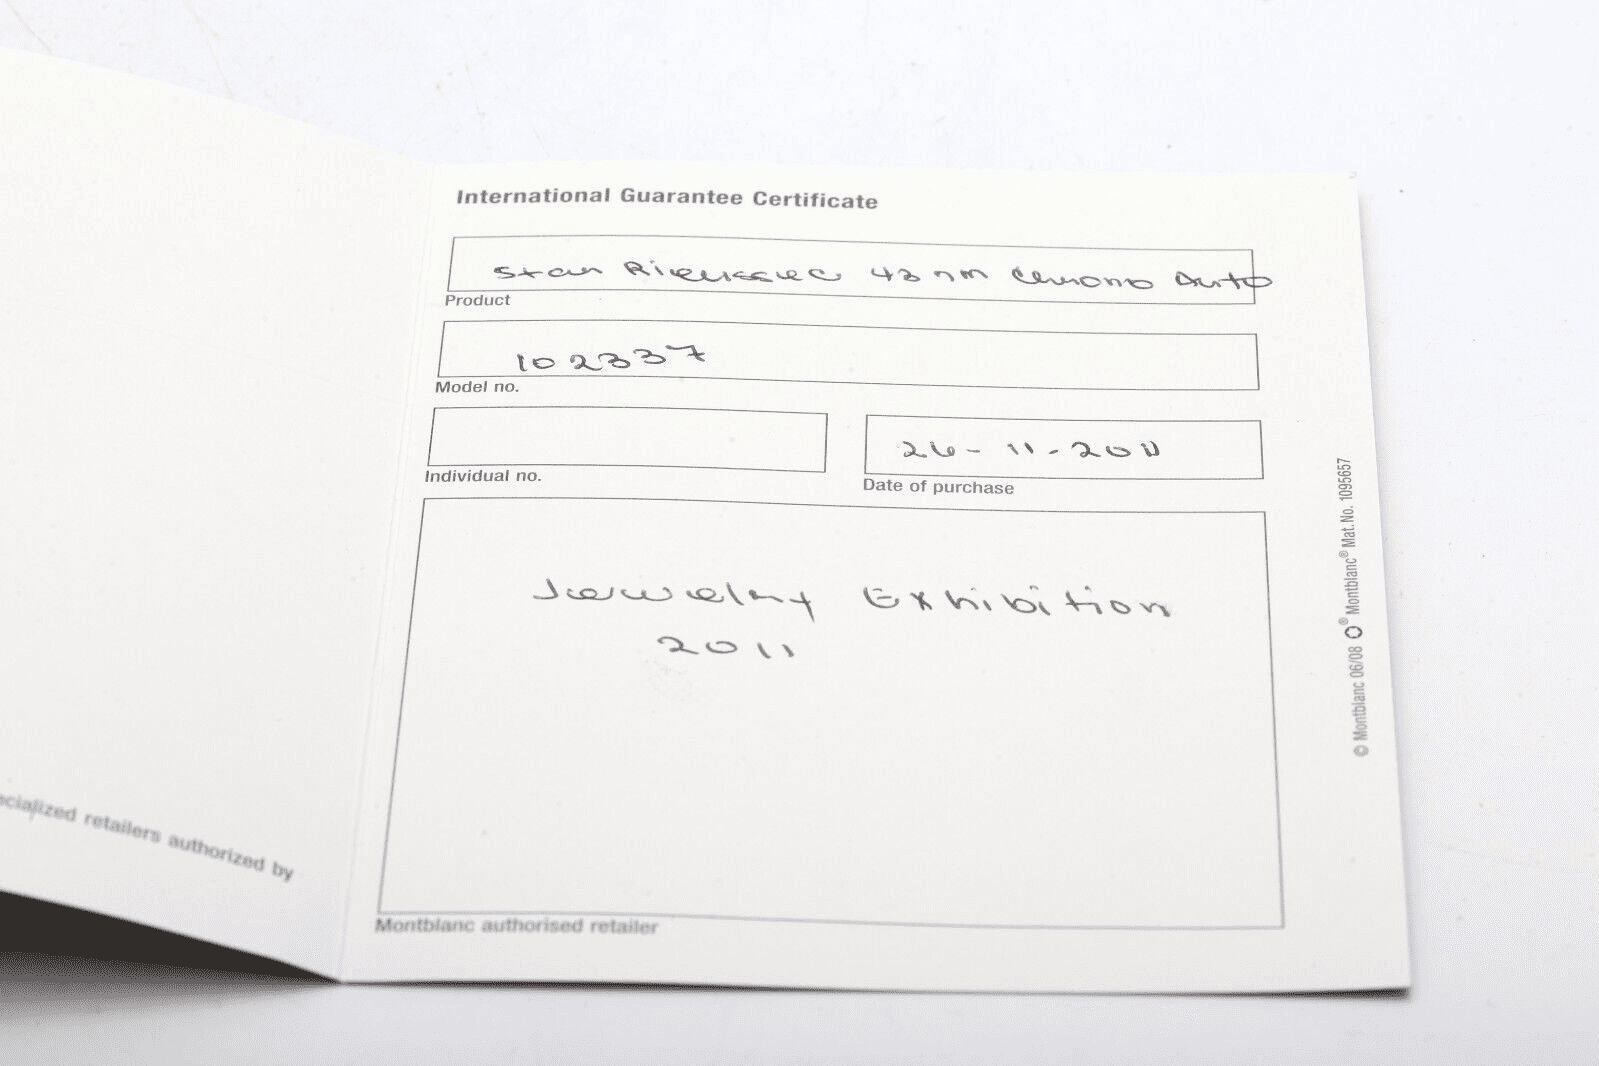 International Guarantee Certificate
Star Rieussec 43 mm Chrono Auto
Product
102337
Model no.
Individual no.
26-11-2011
Date of purchase
Jewelry Exhibition
2011
Montblanc authorised retailer
© Montblanc 06/08 ® Montblanc® Mat.No. 1095657
cialized retailers authorized by